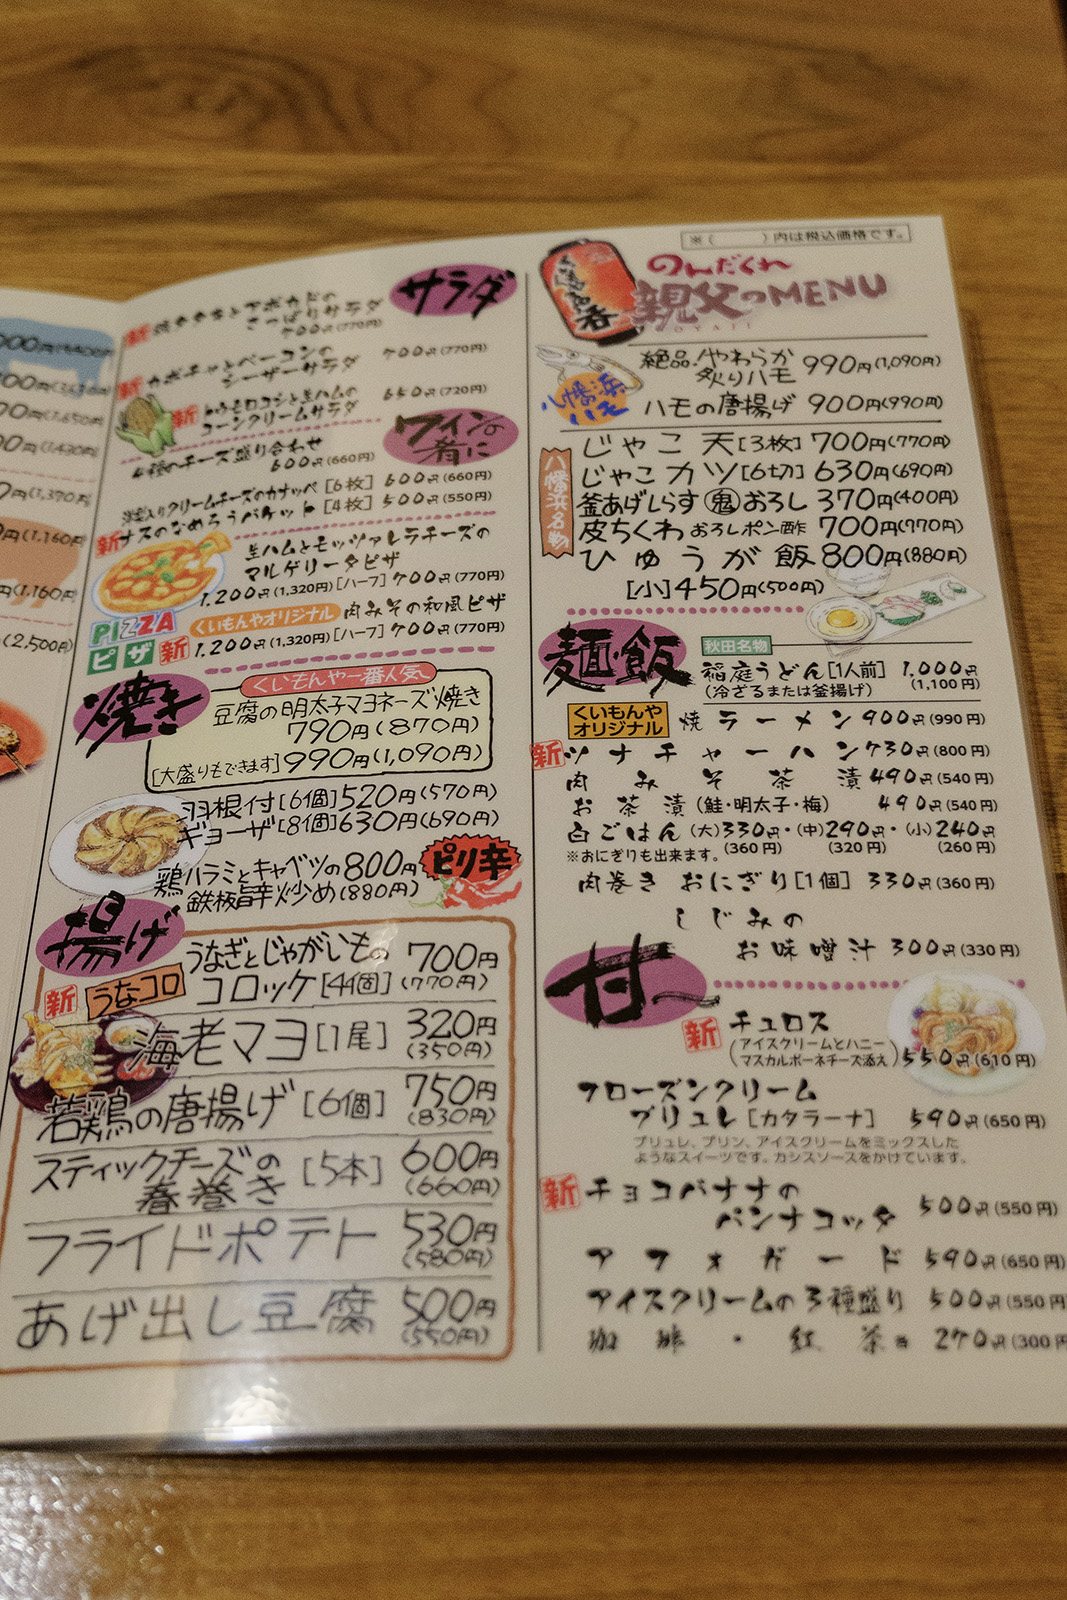 サラダ
新 焼きなすとアボカドの
さっぱりサラダ
700円(770円)
新 カボチャとベーコンの
シーザーサラダ
700円(770円)
新 トウモロコシと生ハムの
コーンクリームサラダ
650円(720円)
ワインの
肴に
4種のチーズ盛り合わせ
600円(660円)
クリームチーズのカナッペ[6枚]600円(660円)
新 ナスのなめろうバケット[4枚]500円(550円)
生ハムとモッツァレラチーズの
マルゲリータピザ
1,200円(1,320円)[ハーフ]700円(770円)
PIZZA
ピザ
くいもんやオリジナル 肉みその和風ピザ
新 1,200円(1,320円)[ハーフ]700円(770円)
焼き
くいもんや一番人気
豆腐の明太子マヨネーズ焼き
790円(870円)
[大盛りもできます]990円(1,090円)
羽根付[6個]520円(570円)
ギョーザ[8個]630円(690円)
鶏ハラミとキャベツの800円
鉄板旨辛炒め(880円)
ピリ辛
揚げ
新 うなコロ
うなぎとじゃがいもの
コロッケ[4個]
700円
(770円)
海老マヨ[1尾] 320円
(350円)
若鶏の唐揚げ[6個] 750円
(830円)
スティックチーズの
春巻き
[5本] 600円
(660円)
フライドポテト 530円
(580円)
あげ出し豆腐 500円
(550円)
※( )内は税込価格です。
のんだくれ
親父のMENU
OYAJI
八幡浜
ハモ
絶品!やわらか
炙りハモ
990円(1,090円)
ハモの唐揚げ 900円(990円)
八幡浜名物
じゃこ天[3枚]700円(770円)
じゃこカツ[6切]630円(690円)
釜あげしらす鬼おろし 370円(400円)
皮ちくわおろしポン酢 700円(770円)
ひゅうが飯 800円(880円)
[小]450円(500円)
麺・飯
秋田名物
稲庭うどん[1人前] 1,000円
(冷ざるまたは釜揚げ) (1,100円)
くいもんや
オリジナル
焼ラーメン 900円(990円)
新 ツナチャーハン 730円(800円)
肉みそ茶漬 490円(540円)
お茶漬(鮭・明太子・梅) 490円(540円)
白ごはん(大)330円・(中)290円・(小)240円
※おにぎりも出来ます。(360円) (320円) (260円)
肉巻きおにぎり[1個] 330円(360円)
しじみの
お味噌汁 300円(330円)
甘〜
新 チュロス
(アイスクリームとハニー
マスカルポーネチーズ添え)550円(610円)
フローズンクリーム
ブリュレ[カタラーナ] 590円(650円)
ブリュレ、プリン、アイスクリームをミックスした
ようなスイーツです。カシスソースをかけています。
新 チョコバナナの
パンナコッタ 500円(550円)
アフォガード 590円(650円)
アイスクリームの3種盛り 500円(550円)
珈琲・紅茶 270円(300円)
000円
(1,650円)
(1,430円)
(1,390円)
(1,160円)
(1,160円)
(2,500円)